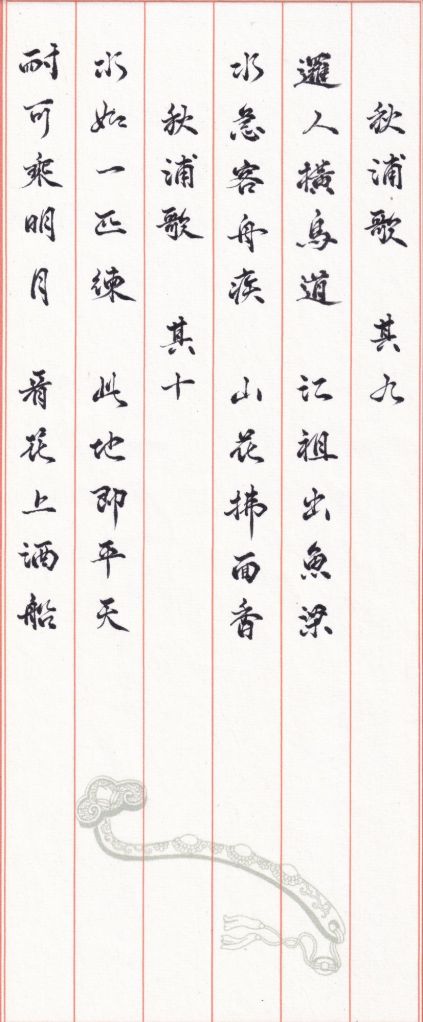 秋浦歌 其九
邏人橫鳥道 江祖出魚梁
水急客舟疾 山花拂面香
秋浦歌 其十
水如一匹練 此地即平天
耐可乘明月 看花上酒船